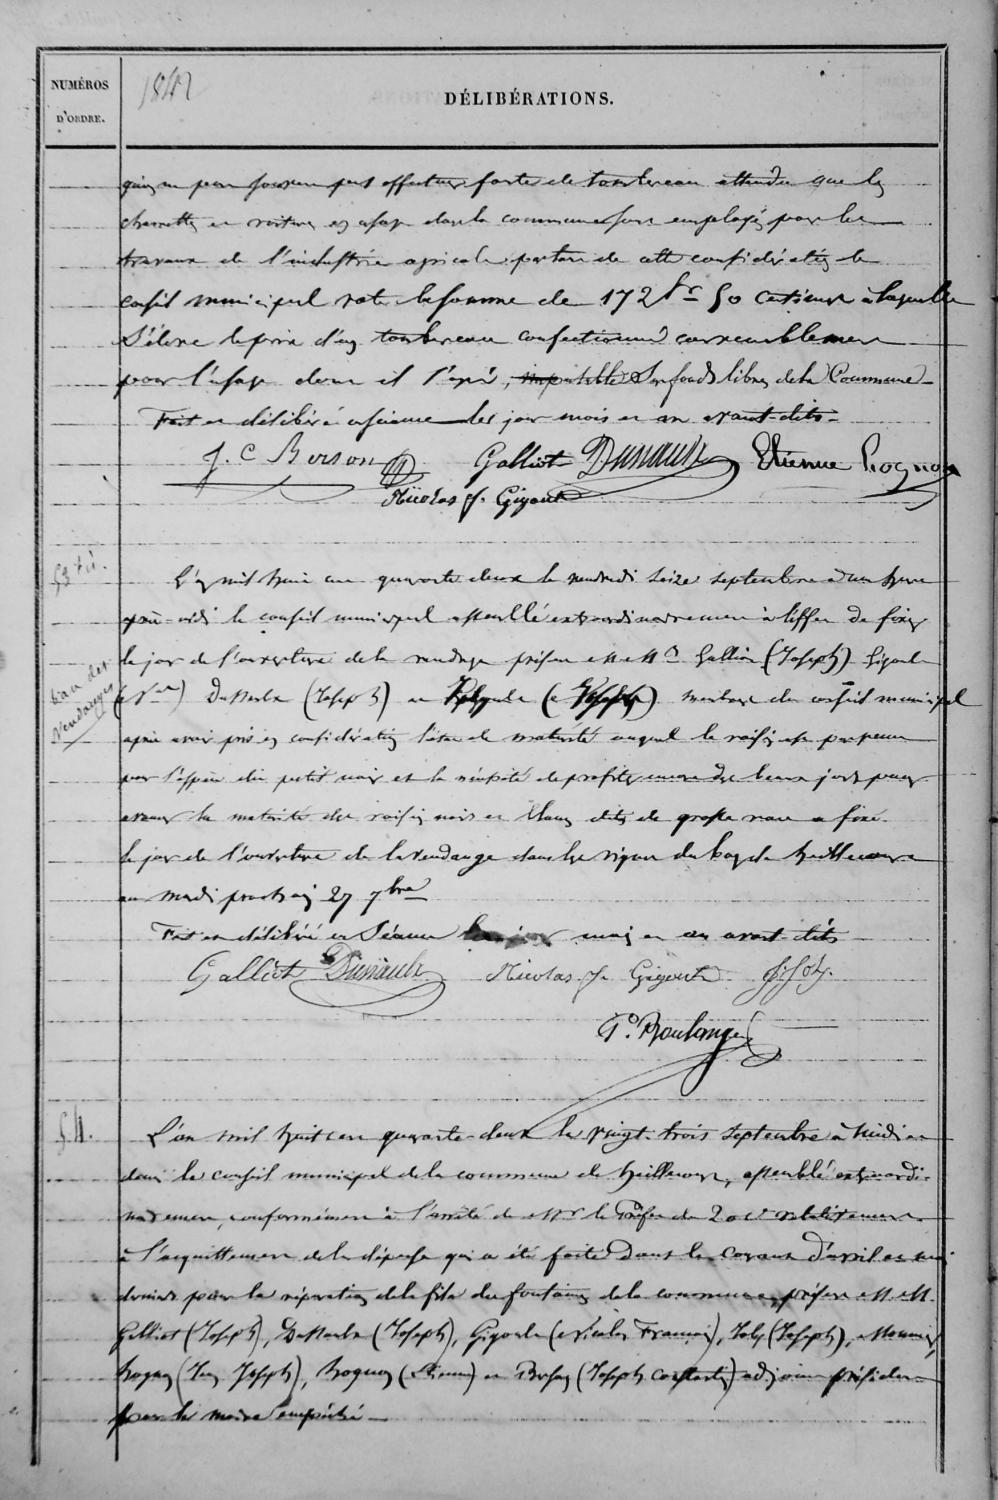 NUMÉROS
D'ORDRE.
1842
DÉLIBÉRATIONS.
pas effectuer sorte de tombereau attendu que les
charrettes et voitures en usage dans la commune sont employés pour les
travaux de l'industrie agricole partant de cette considération le
conseil municipal vote la somme de 172 fr 50 centimes à laquelle
s'élève le prix d'un tombereau confectionné convenablement
pour l'usage dont il s'agit, imputable sur fonds libres de la Commune
Fait et délibéré en séance les jour mois et an avant-dits
J. C Boison Galliot Dussaulx Etienne Hognon
Nicolas f. Gigout
53
L'an mil huit cent quarante deux le vendredi seize septembre à une heure
après-midi le conseil municipal assemblé extraordinairement à l'effet de fixer
le jour de l'ouverture de la vendange présens MM. Galliot (Joseph) Gigout
ban des
Vendanges
(Joseph) et membres du conseil municipal
après avoir pris en considération l'état de maturité auquel le raisin est parvenu
pour l'espèce du petit noir et la nécessité de profiter encore des beaux jours pour
avancer la maturité des raisins noirs et blancs dits de grosse race a fixé
le jour de l'ouverture de la vendange dans les vignes du ban de heillecourt
au mardi prochain 27 7bre
Fait et délibéré en Séance les jour mois et an avant dits
Galliot Dussaulx Nicolas f. Gigout J. Joly.
Boulanger
54.
L'an mil huit cent quarante-deux le vingt-trois septembre à midi et
demi le conseil municipal de la commune de heillecourt, assemblé extraordi-
nairement, conformément à l'arrêté de Mr le Préfet du 20 ct relativement
à l'acquittement de la dépense qui a été faite dans le courant d'avril et mai
derniers pour la réparation de la file des fontaines de la commune, présens MM.
Galliot (Joseph), (Joseph), Gigout (Nicolas François), Joly (Joseph), Mounier,
hognon (Joseph), hognon (Etienne) et Boison (Joseph Constant) adjoint présidant
pour le maire empêché